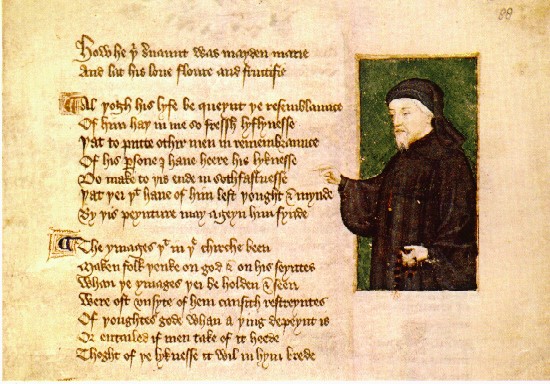 88
How he þͥ s̄uaunt was mayden marie
And lat his loue floure and fructifie
Al þogh his lyfe be queynt þe resemblaunce
Of him haþ in me so fressh lyflynesse
Þat to putte othir men in remembraunce
Of his ꝑsone I haue heere his lyknesse
Do make to þis ende in sothfastnesse
Þat þei þᵗ haue of him left þought & mynde
By þis peynture may ageyn him fynde
The ymages þᵗ in þᵉ chirche been
Maken folk þenke on god & on his seyntes
Whan þe ymages þei be holden & seen
Were oft vnsyte of hem causith restreyntes
Of þoughtes gode whan a þing depeynt is
Or entailed if men take of it heede
Thoght of þe lyknesse it wil in hym brede